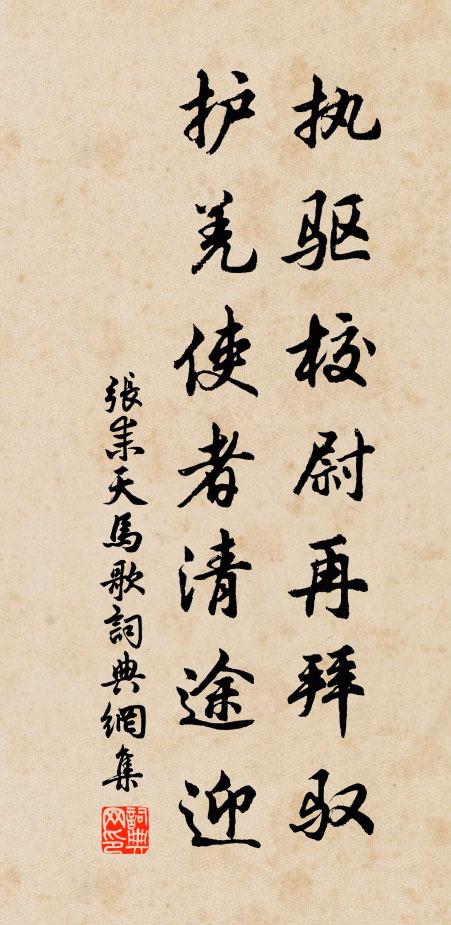 执驱校尉再拜驭
护羌使者清途迎
張耒天馬歌詞典網集
詞典網印